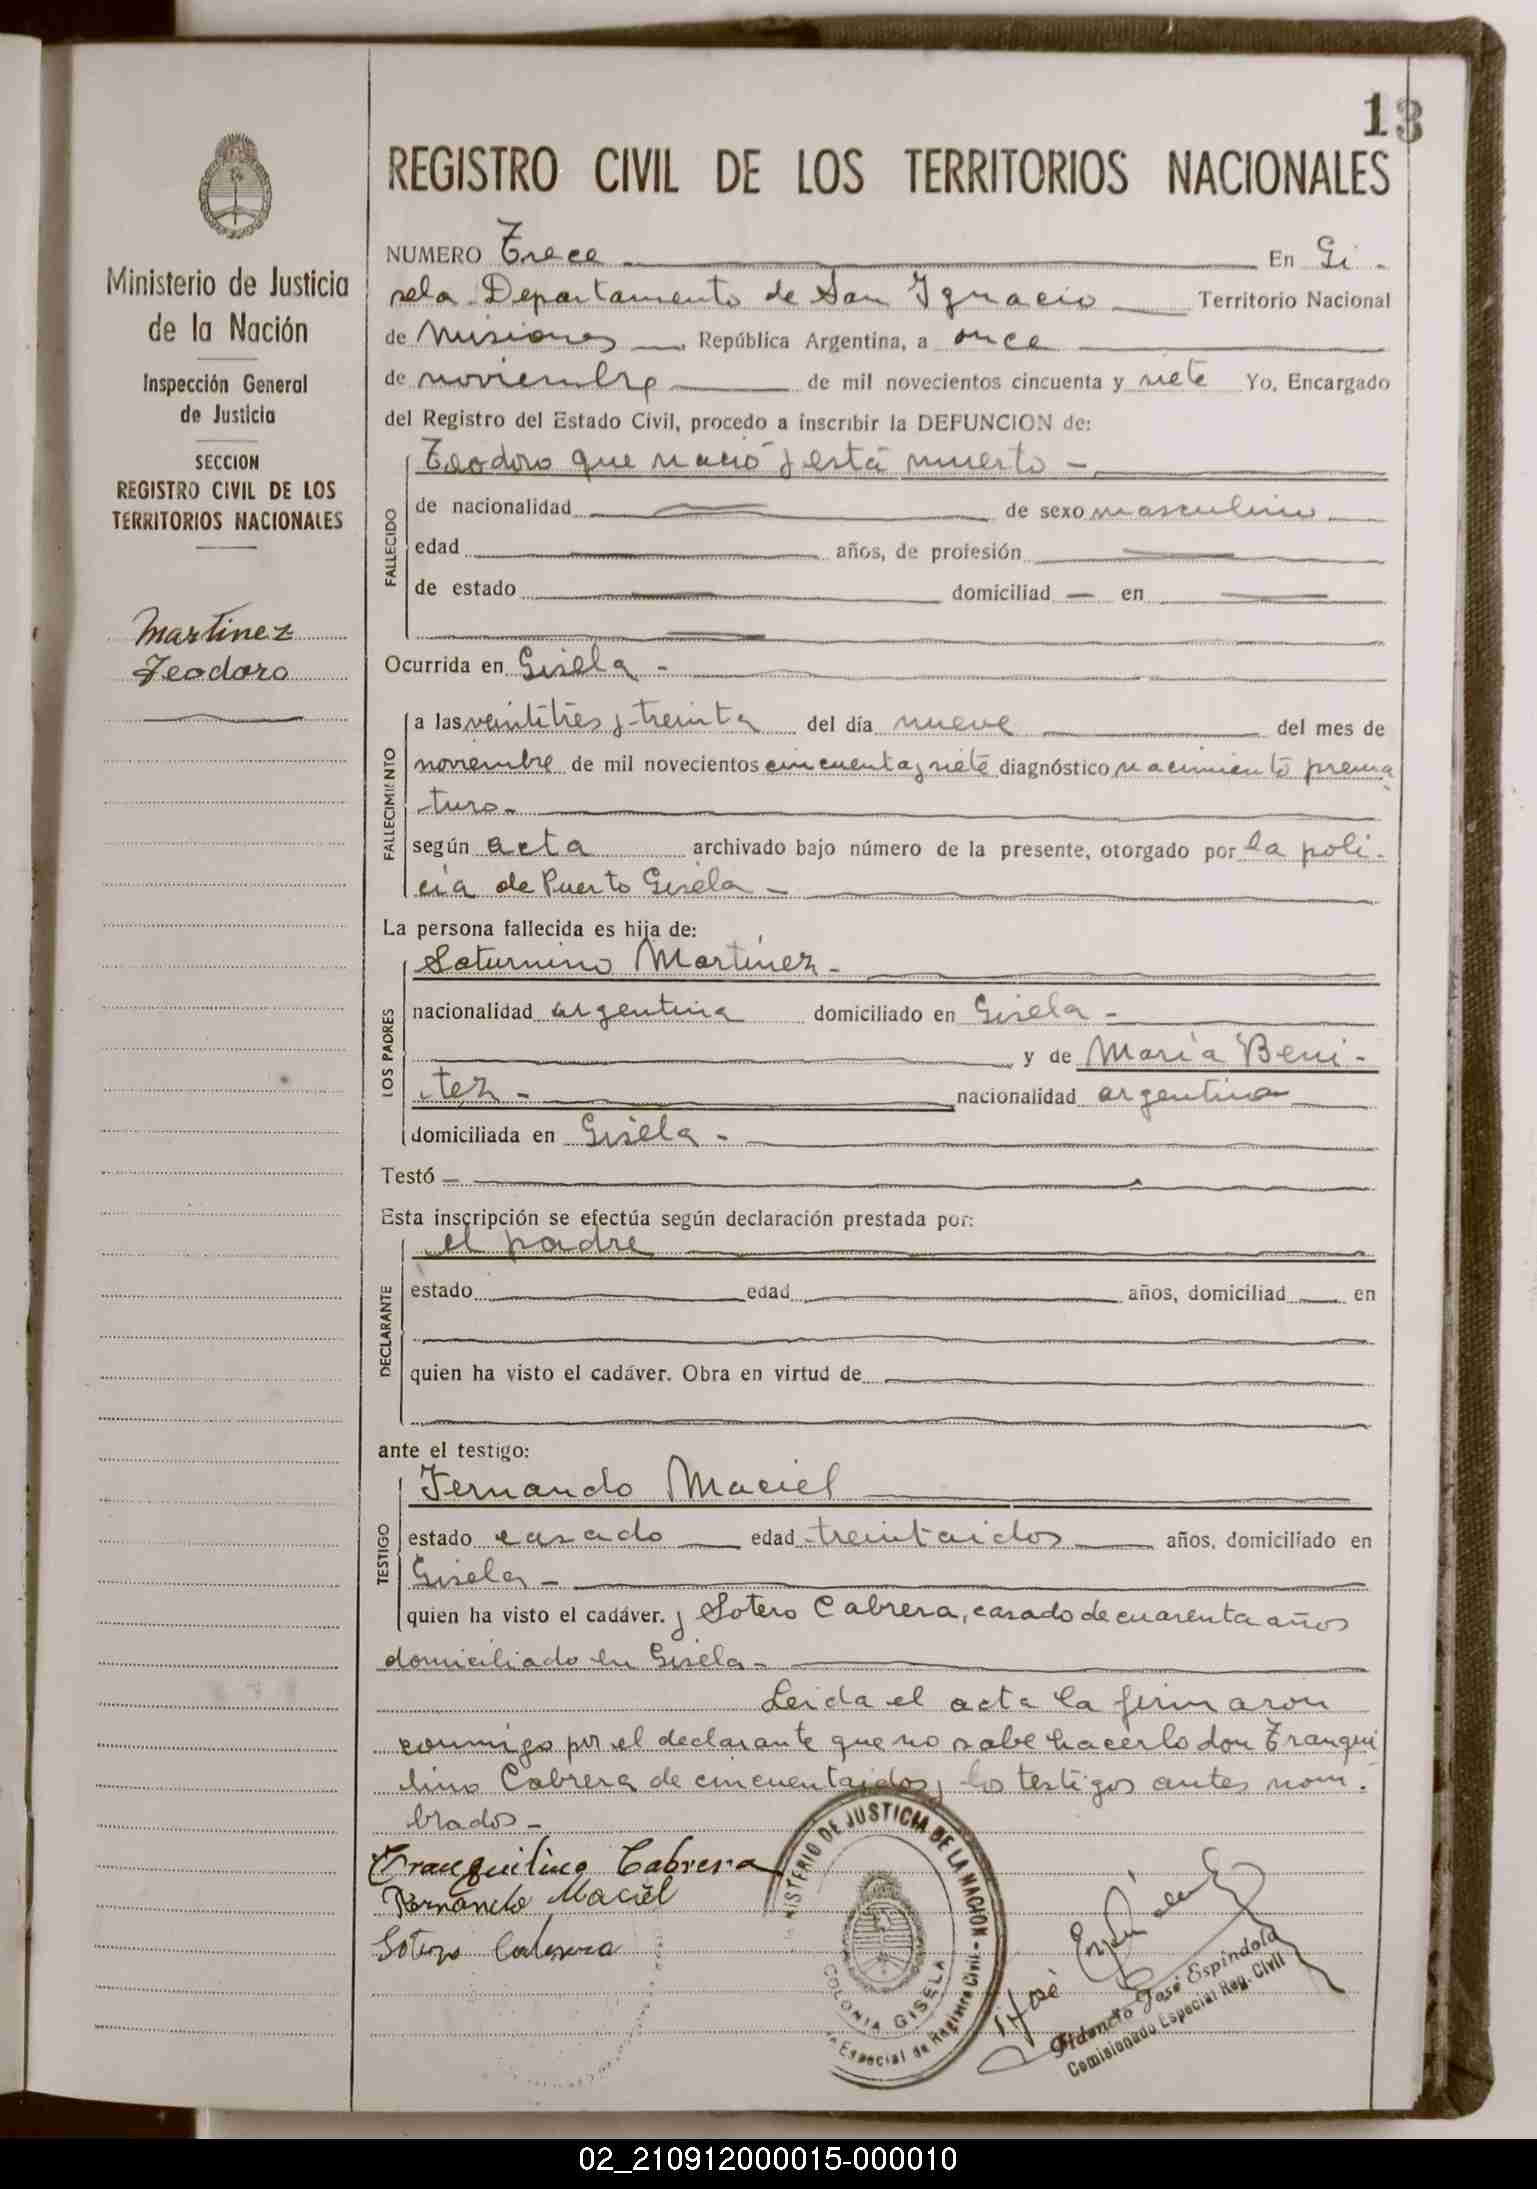 13
REGISTRO CIVIL DE LOS TERRITORIOS NACIONALES
Ministerio de Justicia
de la Nación
Inspección General
de Justicia
SECCION
REGISTRO CIVIL DE LOS
TERRITORIOS NACIONALES
Martinez
Teodoro
NUMERO Trece En Gi-
sela Departamento de San Ygnacio Territorio Nacional
de Misiones República Argentina, a once
de noviembre de mil novecientos cincuenta y siete Yo, Encargado
del Registro del Estado Civil, procedo a inscribir la DEFUNCION de:
Teodoro que nació y está muerto -
FALLECIDO
de nacionalidad de sexo masculino
edad años, de profesión
de estado domiciliad — en
Ocurrida en Gisela -
FALLECIMIENTO
a las veintitrés y treinta del día nueve del mes de
noviembre de mil novecientos cincuenta y siete diagnóstico nacimiento prema
turo -
según acta archivado bajo número de la presente, otorgado por la poli-
cía de Puerto Gisela -
La persona fallecida es hija de:
LOS PADRES
Saturnino Martinez -
nacionalidad argentina domiciliado en Gisela -
y de María Beni-
tez - nacionalidad argentina
domiciliada en Gisela -
Testó —
Esta inscripción se efectúa según declaración prestada por:
DECLARANTE
el padre
estado edad años, domiciliad en
quien ha visto el cadáver. Obra en virtud de
ante el testigo:
TESTIGO
Fernando Maciel
estado casado edad treintaidos años, domiciliado en
Gisela -
quien ha visto el cadáver. y Sotero Cabrera, casado de cuarenta años
domiciliado en Gisela -
Leida el acta la firmaron
conmigo por el declarante que no sabe hacerlo don Tranqui
lino Cabrera de cincuentaidos y los testigos antes nom-
brados -
Tranquilino Cabrera
Fernando Maciel
Sotero Cabrera
MINISTERIO DE JUSTICIA DE LA NACION
COLONIA GISELA
Especial de Registro Civil
José
Fidencio José Espíndola
Comisionado Especial Reg. Civil
02_210912000015-000010